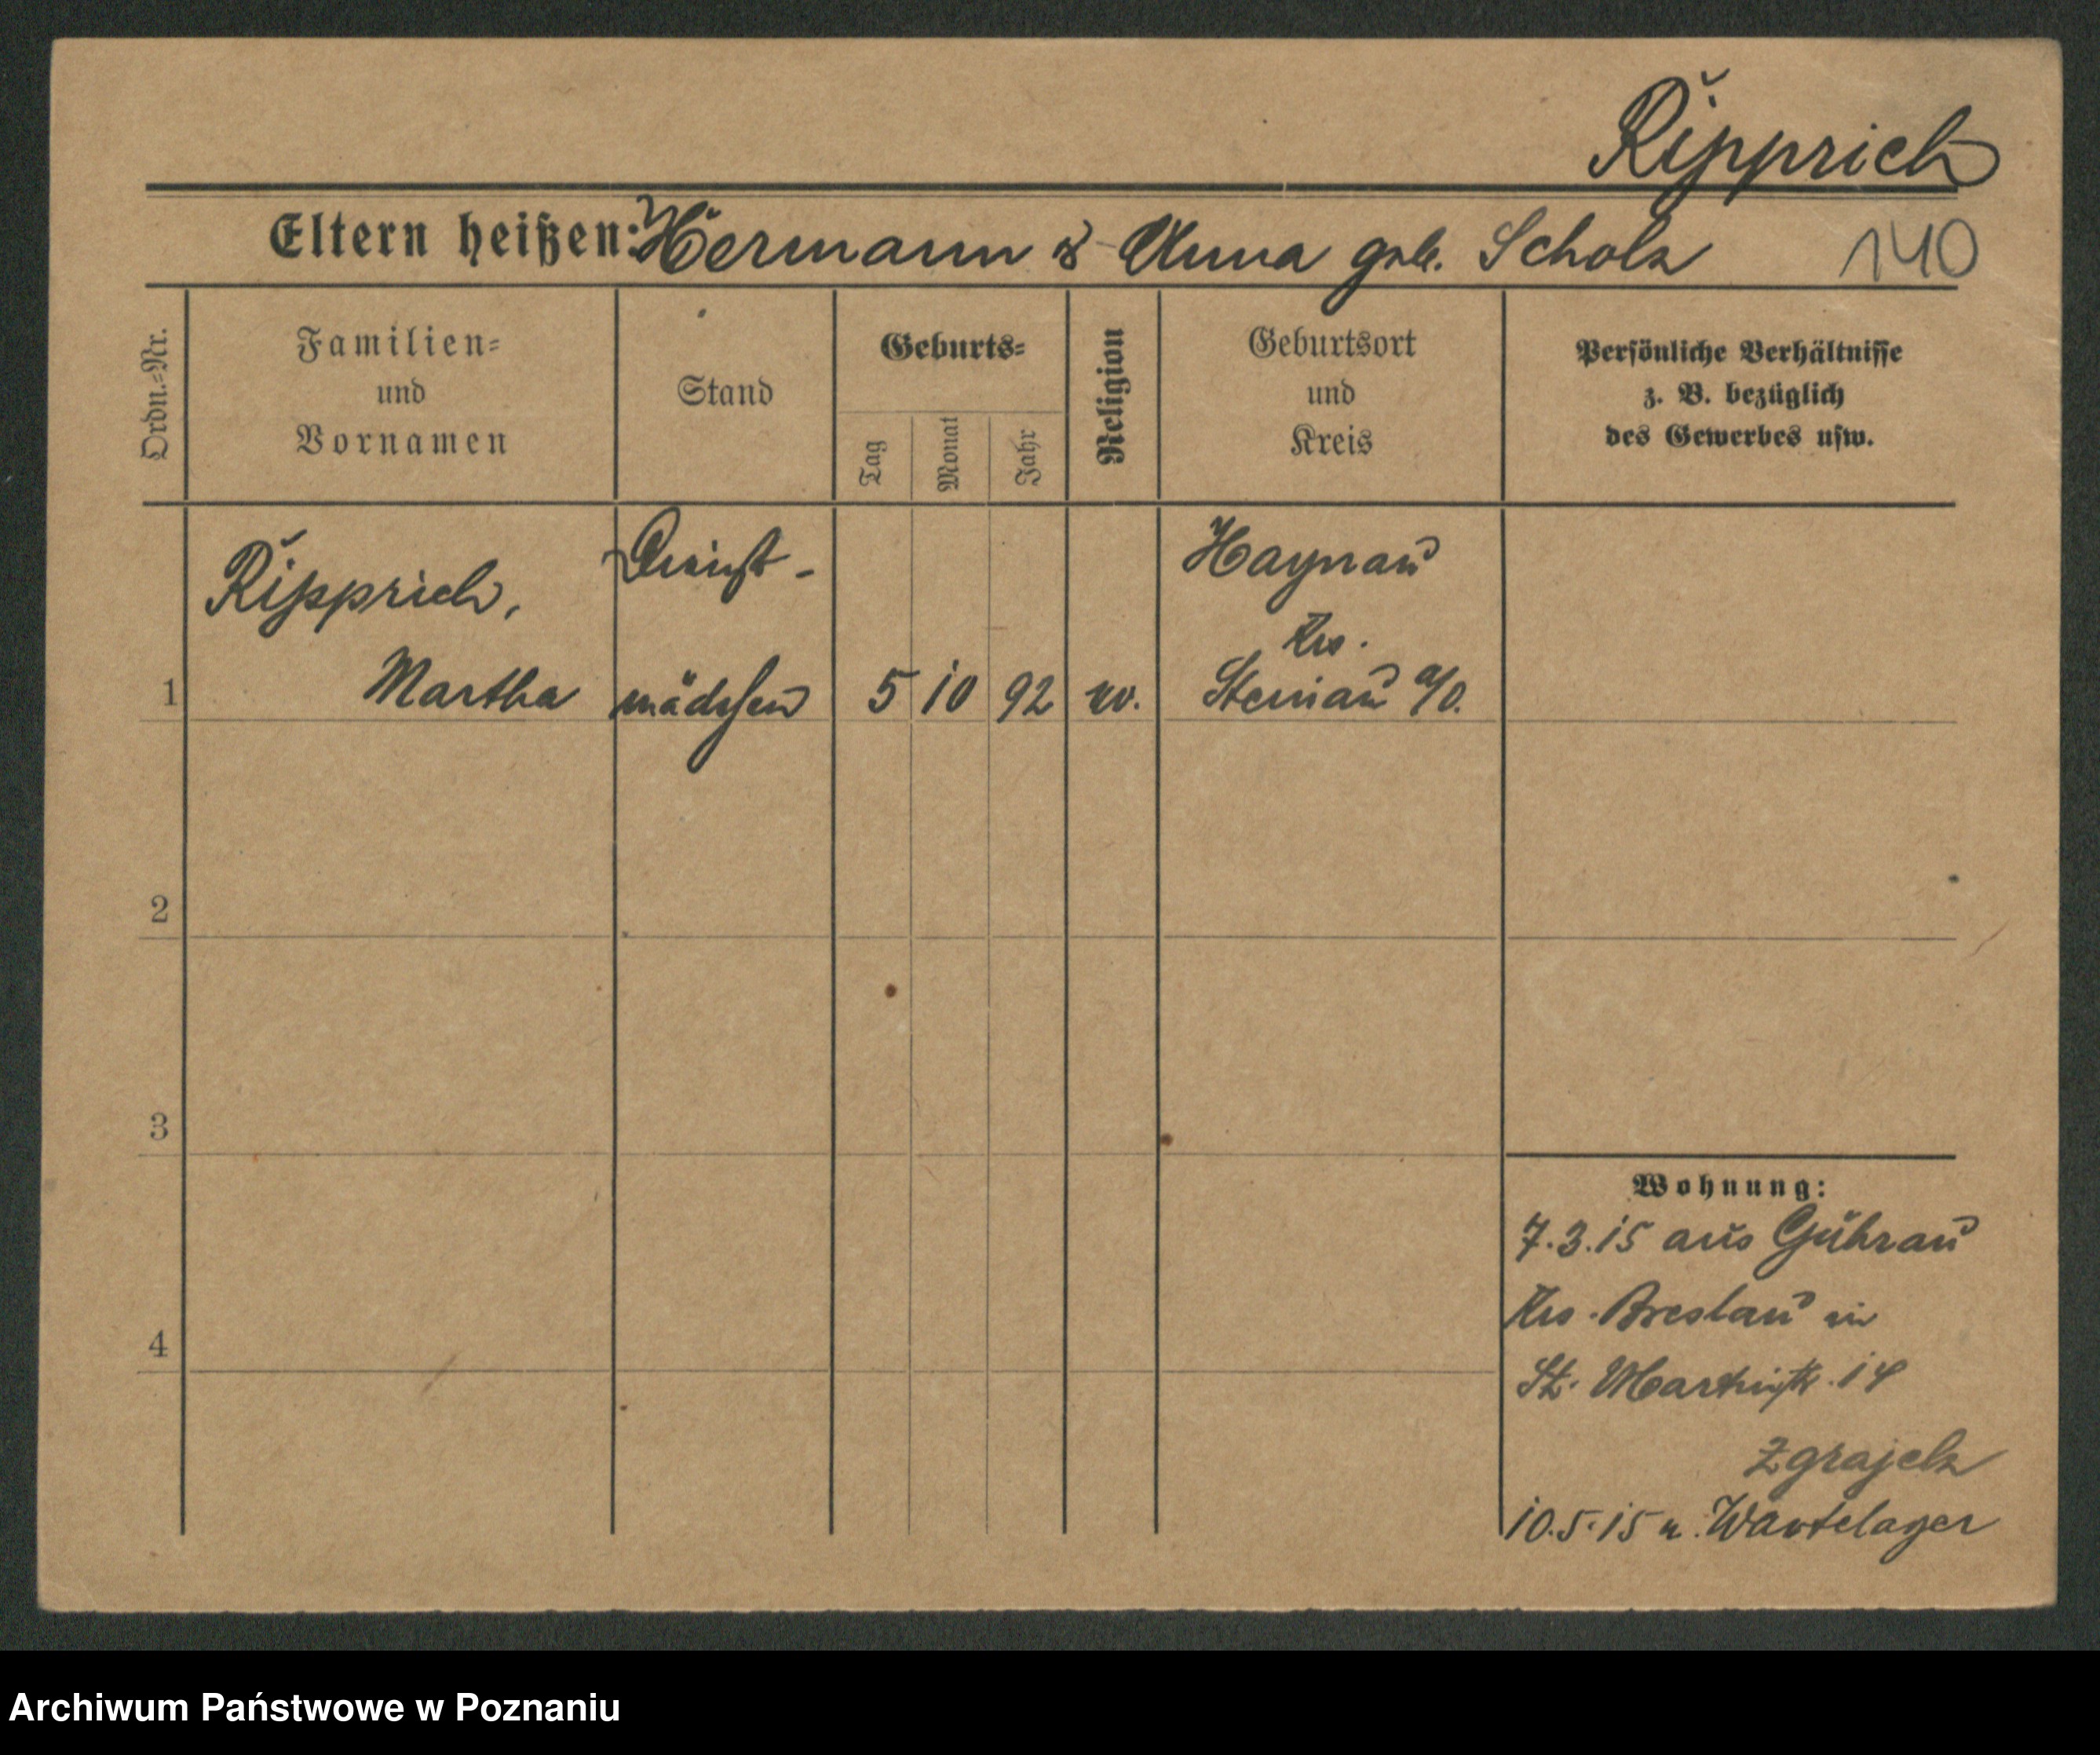 Ripprich
Eltern heißen: Hermann & Anna geb. Scholz 140
Ordn.=Nr.
Familien=
und
Vornamen
Stand
Geburts=
Tag
Monat
Jahr
Religion
Geburtsort
und
Kreis
Persönliche Verhältnisse
z. B. bezüglich
des Gewerbes usw.
Ripprich, Dienst-
Haynau
Krs.
1 Martha mädchen 5 10 92 ev. Steinau a/O.
2
3
4
Wohnung:
7.3.15 aus Guhrau
Krs. Breslau in
St. Martinstr. 14
Zgrajek
10.5.15 n. Wartelager
Archiwum Państwowe w Poznaniu